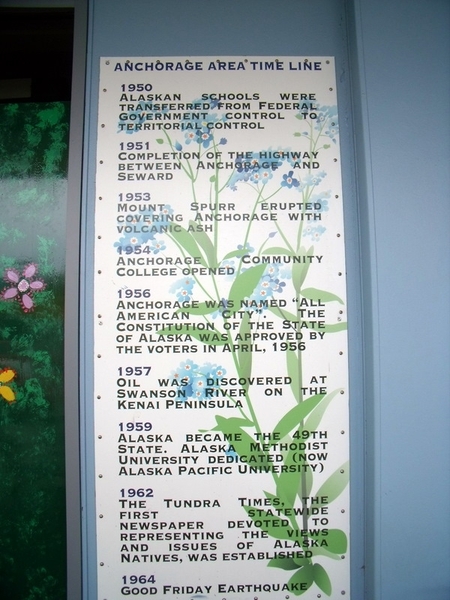 ANCHORAGE AREA TIME LINE
1950
ALASKAN SCHOOLS WERE
TRANSFERRED FROM FEDERAL
GOVERNMENT CONTROL TO
TERRITORIAL CONTROL
1951
COMPLETION OF THE HIGHWAY
BETWEEN ANCHORAGE AND
SEWARD
1953
MOUNT SPURR ERUPTED
COVERING ANCHORAGE WITH
VOLCANIC ASH
1954
ANCHORAGE COMMUNITY
COLLEGE OPENED
1956
ANCHORAGE WAS NAMED “ALL
AMERICAN CITY”. THE
CONSTITUTION OF THE STATE
OF ALASKA WAS APPROVED BY
THE VOTERS IN APRIL, 1956
1957
OIL WAS DISCOVERED AT
SWANSON RIVER ON THE
KENAI PENINSULA
1959
ALASKA BECAME THE 49TH
STATE. ALASKA METHODIST
UNIVERSITY DEDICATED (NOW
ALASKA PACIFIC UNIVERSITY)
1962
THE TUNDRA TIMES, THE
FIRST STATEWIDE
NEWSPAPER DEVOTED TO
REPRESENTING THE VIEWS
AND ISSUES OF ALASKA
NATIVES, WAS ESTABLISHED
1964
GOOD FRIDAY EARTHQUAKE